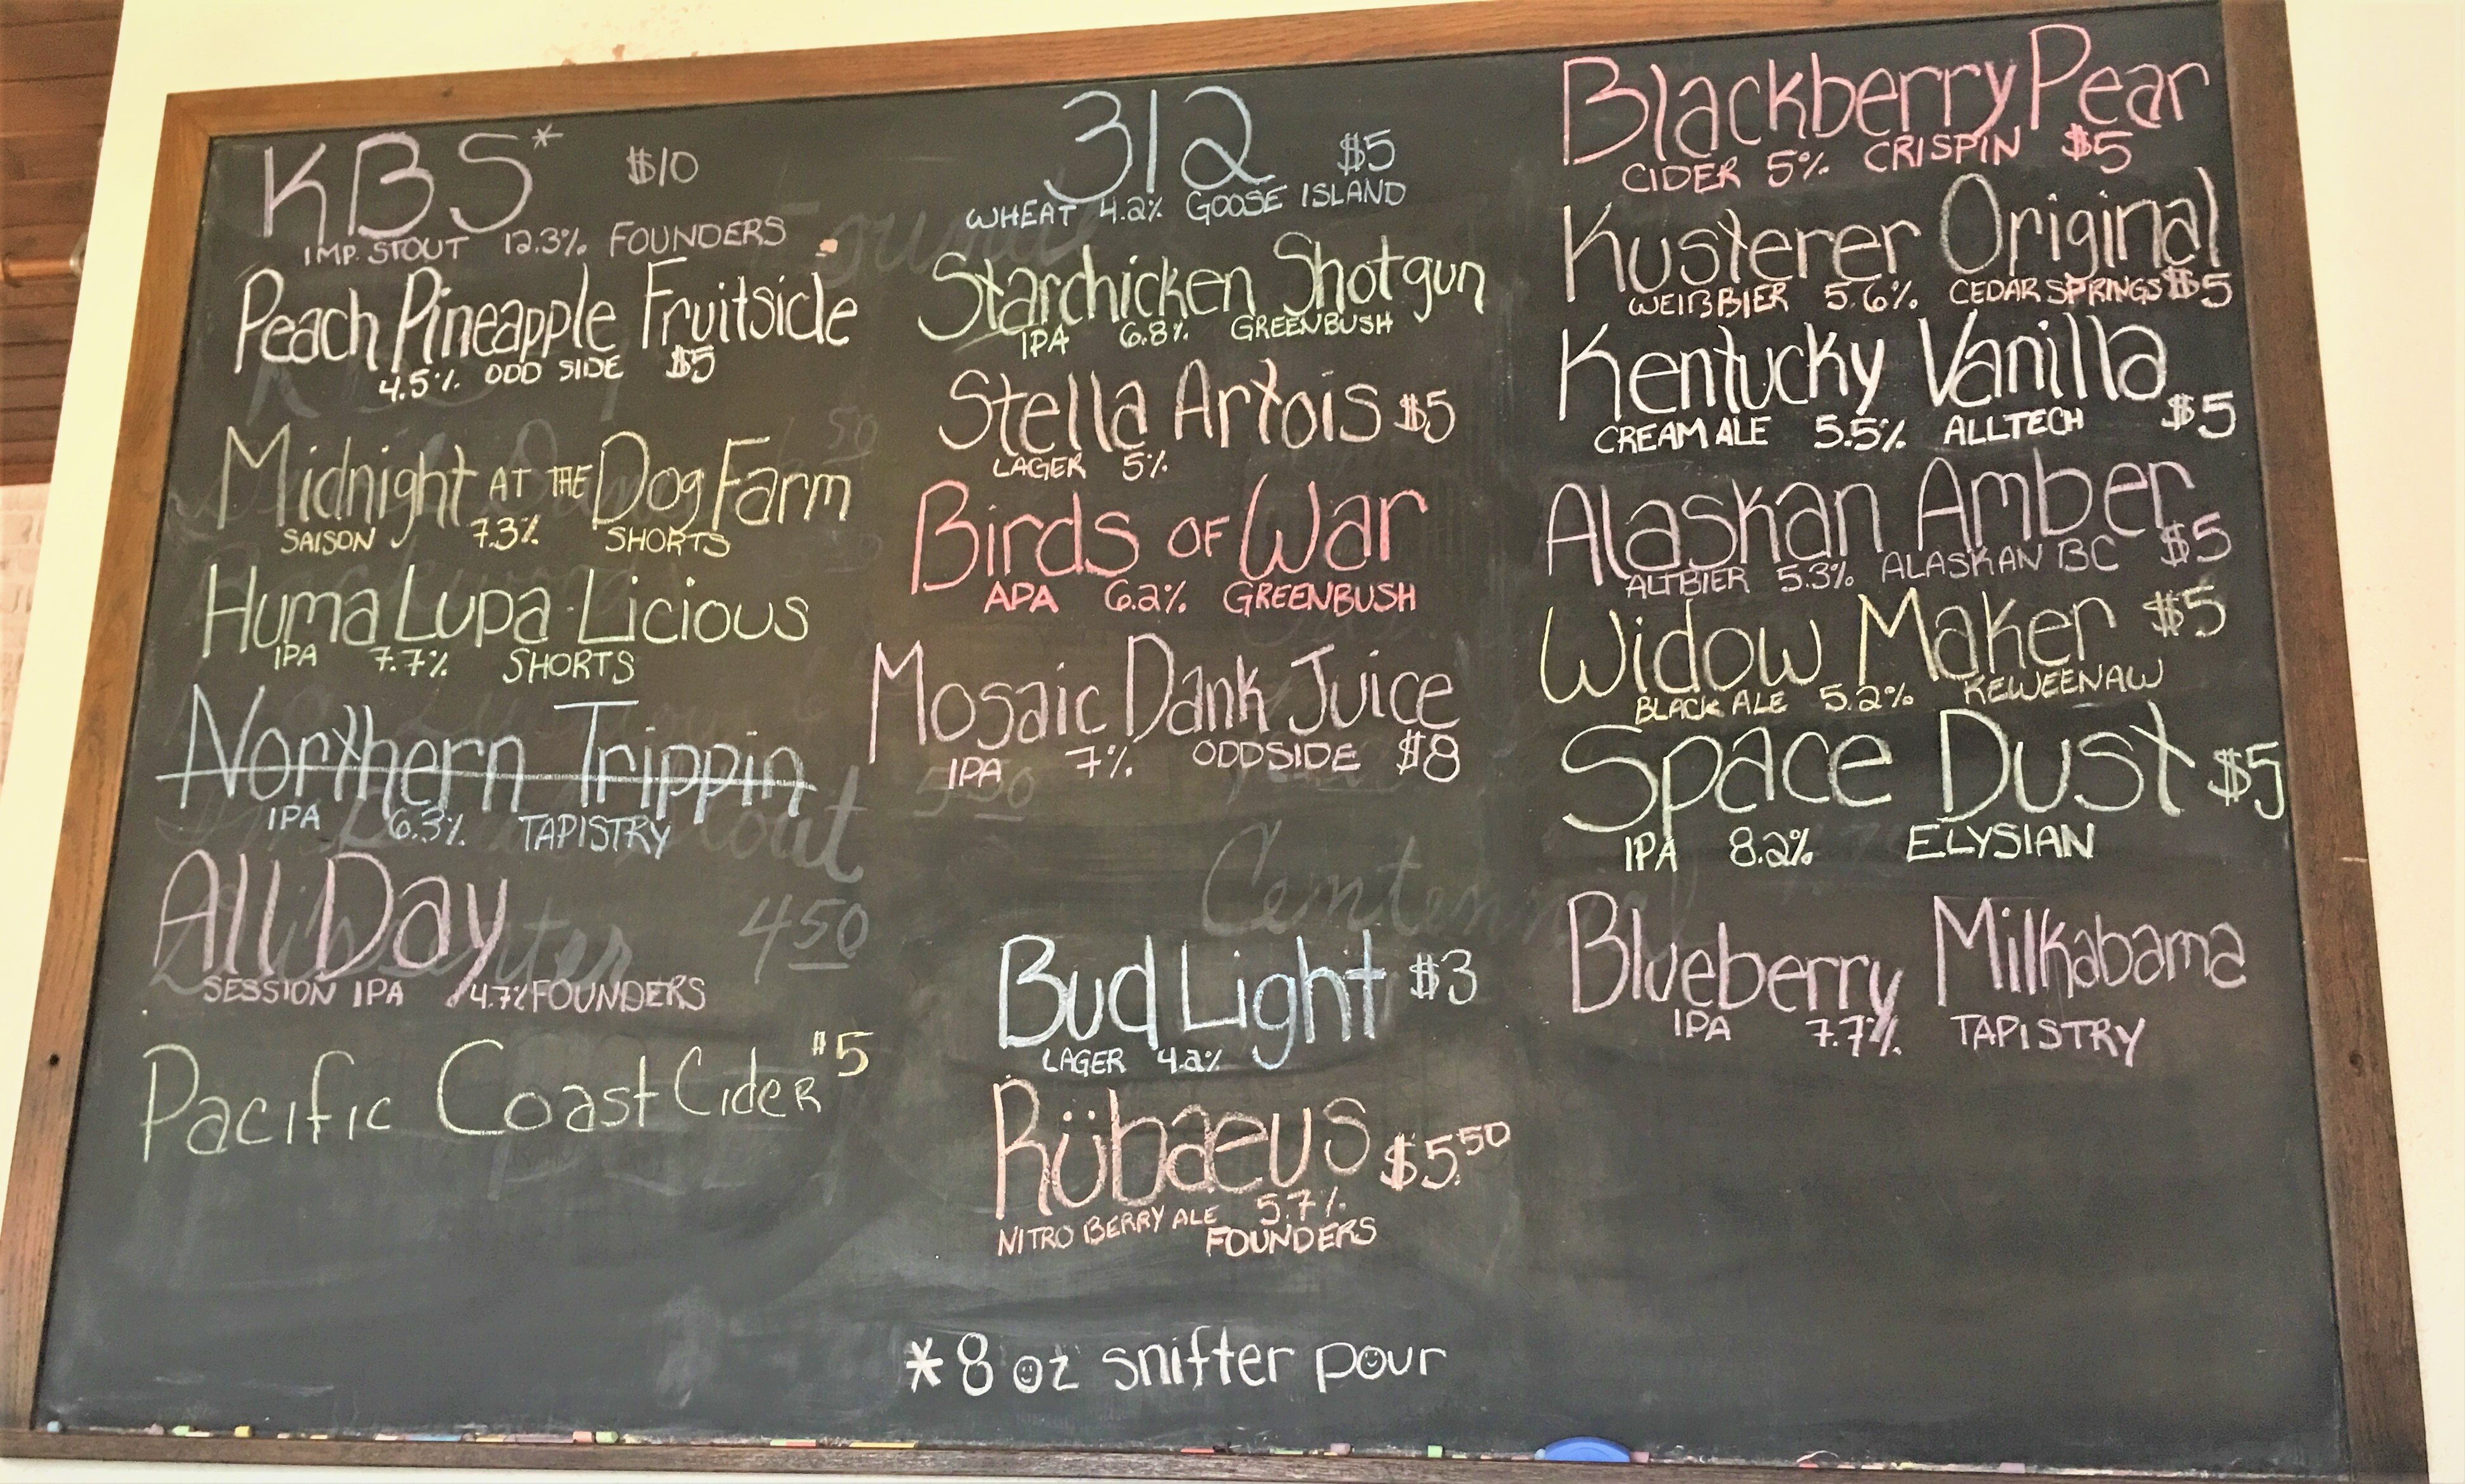 KBS* $10
IMP. STOUT 12.3% FOUNDERS
Peach Pineapple Fruitside
4.5% ODD SIDE $5
Midnight AT THE Dog Farm
SAISON 7.3% SHORTS
Huma Lupa-Licious
IPA 7.7% SHORTS
Northern Trippin
IPA 6.3% TAPISTRY
All Day
SESSION IPA 4.7% FOUNDERS
450
Pacific Coast Cider $5
312 $5
WHEAT 4.2% GOOSE ISLAND
Starchicken Shotgun
IPA 6.8% GREENBUSH
Stella Artois $5
LAGER 5%
Birds OF War
APA 6.2% GREENBUSH
Mosaic Dank Juice
IPA 7% ODDSIDE $8
Centennial
Bud Light $3
LAGER 4.2%
Rübaeus $5.50
NITRO BERRY ALE 5.7%
FOUNDERS
Blackberry Pear
CIDER 5% CRISPIN $5
Kusterer Original
WEIßBIER 5.6% CEDAR SPRINGS $5
Kentucky Vanilla
CREAM ALE 5.5% ALLTECH $5
Alaskan Amber
ALTBIER 5.3% ALASKAN BC $5
Widow Maker $5
BLACK ALE 5.2% KEWEENAW
Space Dust $5
IPA 8.2% ELYSIAN
Blueberry Milkabama
IPA 7.7% TAPISTRY
*8 oz snifter pour